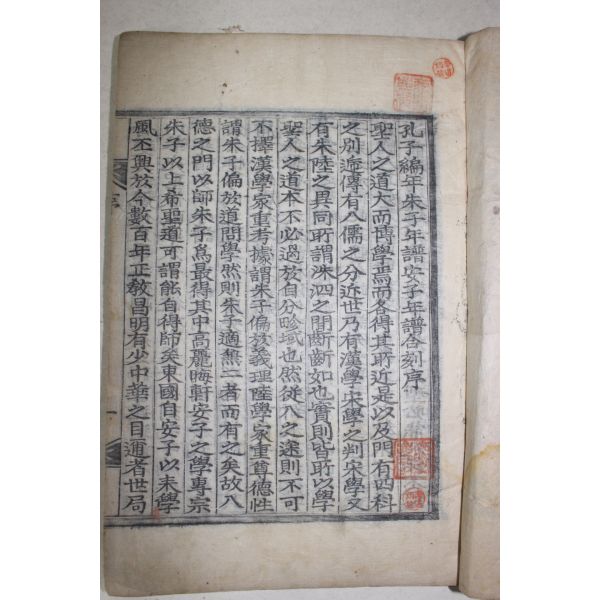 孔子編年朱子年譜安子年譜合刻序
聖人之道大而博學焉而各得其所近是以及門有四科
之別逓傳有八儒之分近世乃有漢學宋學之判宋學又
有朱陸之異同所謂洙泗之間斷斷如也實則皆所以學
聖人之道本不必過於自分畛域也然從入之途則不可
不擇漢學家重考據謂朱子偏於義理陸學家重尊德性
謂朱子偏於道問學然則朱子適無二者而有之矣故入
德之門以師朱子爲最得其中高麗晦軒安子之學專宗
朱子以上希聖道可謂能自得師矣東國自安子以朱學
風丕興於今數百年正敎昌明有少中華之目邇者世局
序
一